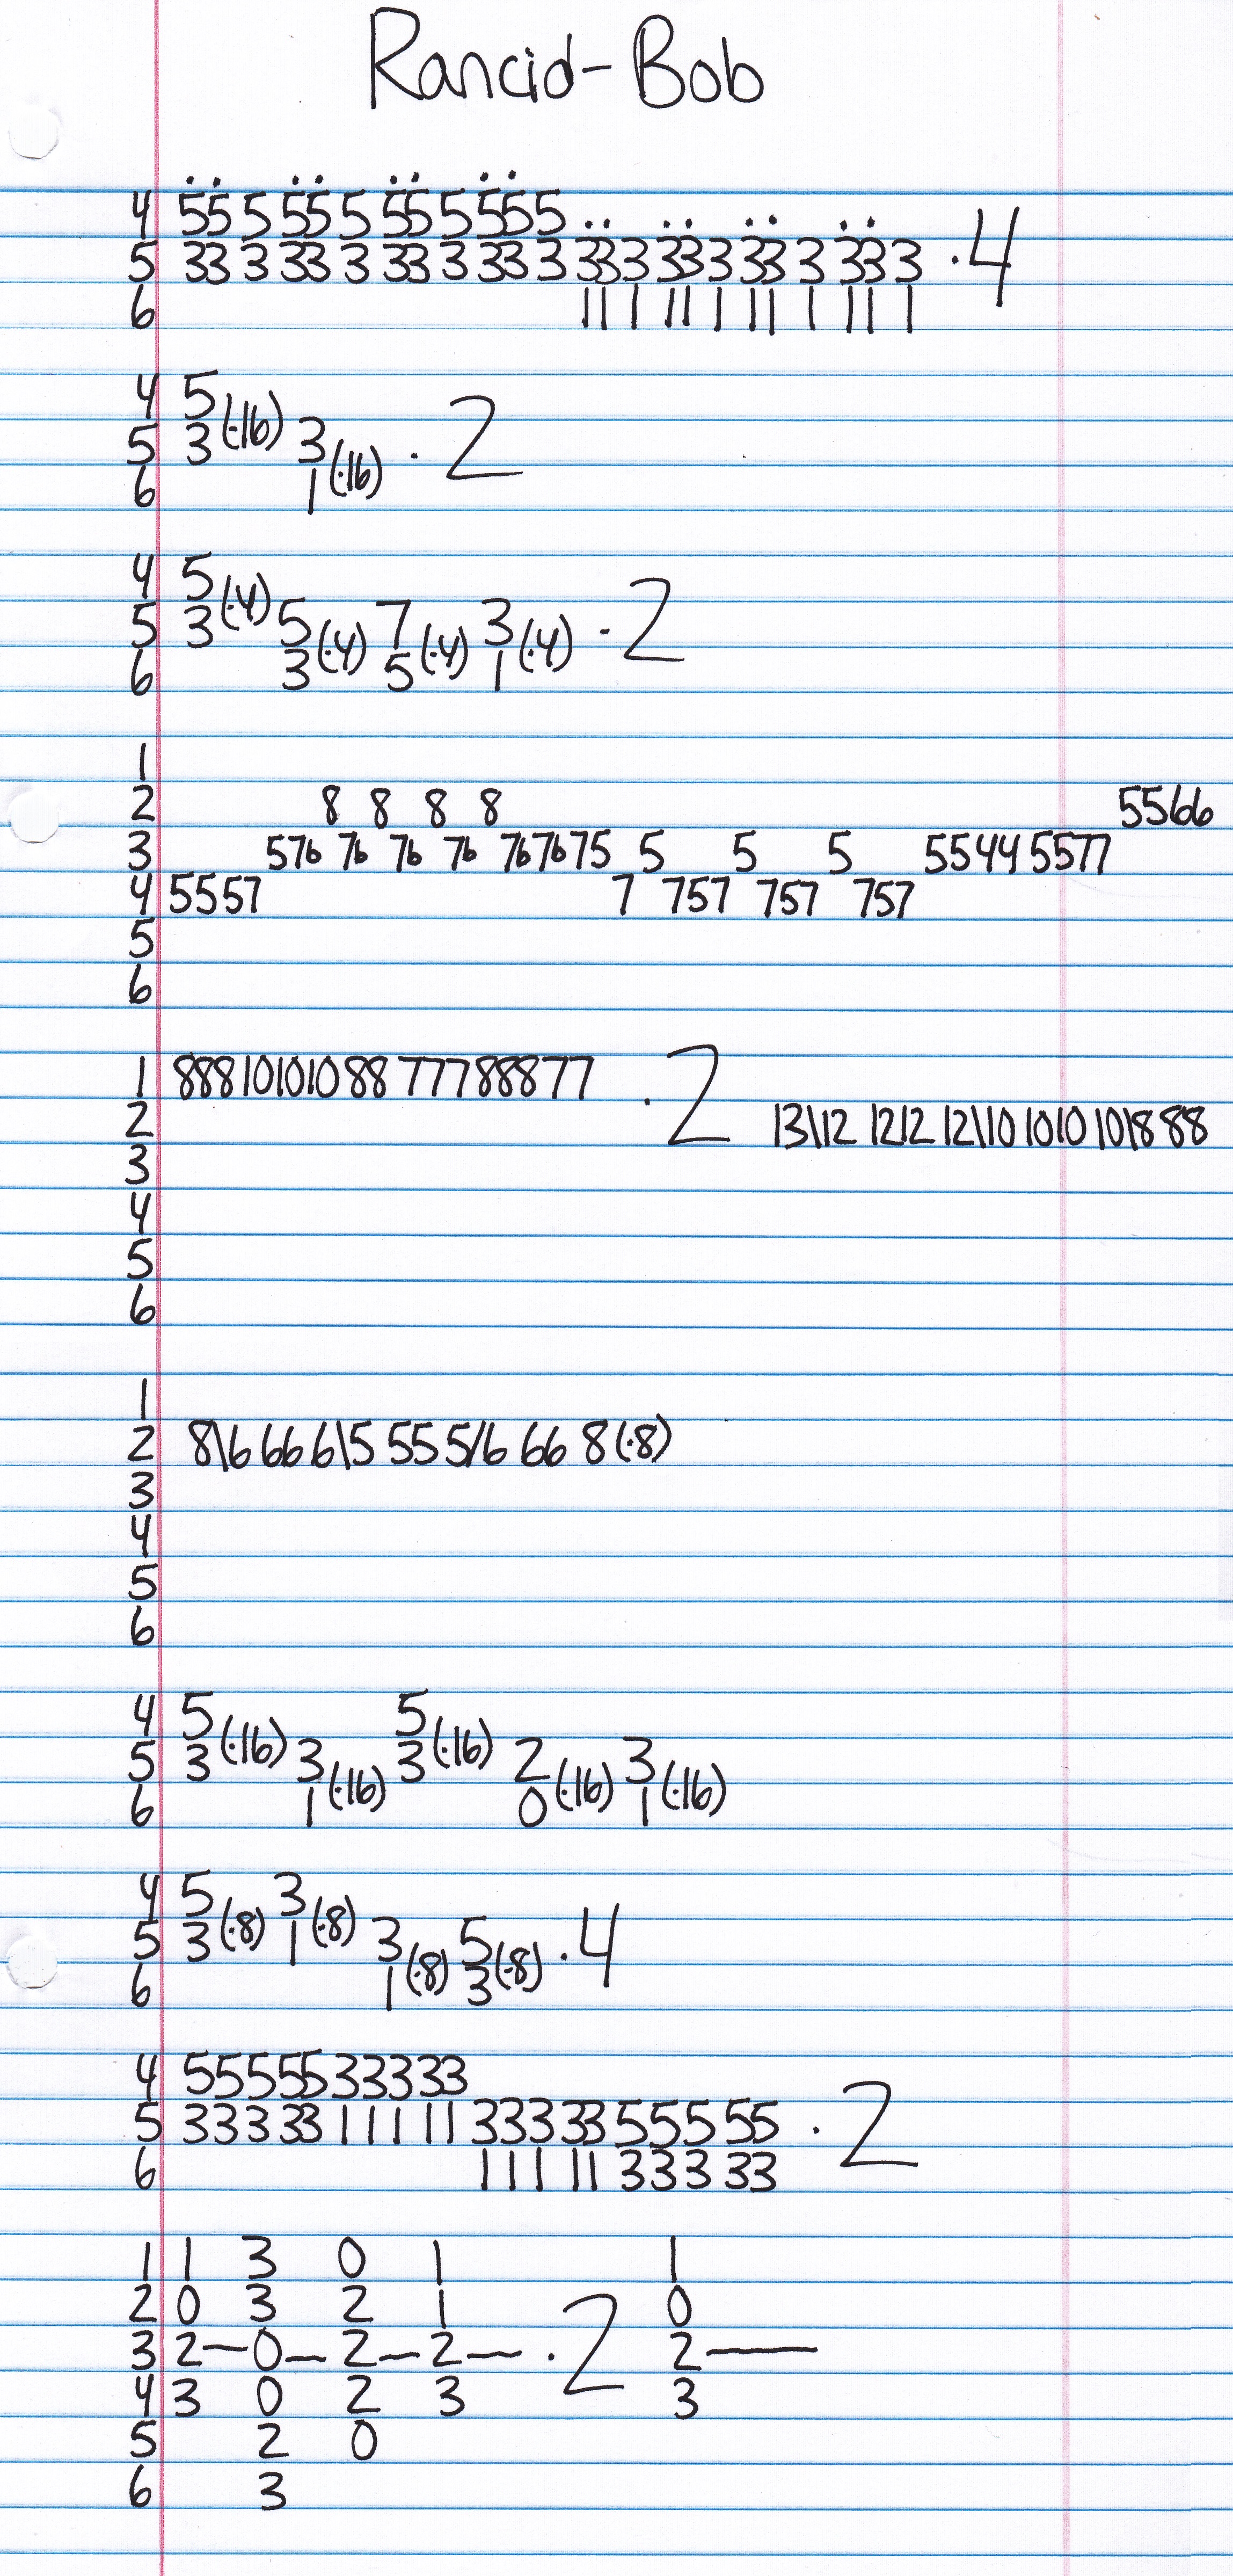 Rancid-Bob
4 55 5 55 5 55 5 555
5 33 3 33 3 33 3 33 3 33 3 33 3 33 3 33 3 ·4
6 11 1 11 1 11 1 11 1
4 5
5 3 (·16) 3
6 1 (·16) ·2
4 5
5 3 (·4) 5 7 3 ·2
6 3 (·4) 5 (·4) 1 (·4)
1
2 8 8 8 8 5566
3 576 76 76 76 767675 5 5 5 5544 5577
4 5557 7 757 757 757
5
6
1 888101010 88 77788877 ·2
2 13\12 1212 12\10 1010 10\8 88
3
4
5
6
1
2 8\6 66 6\5 55 5/6 66 8 (·8)
3
4
5
6
4 5 5
5 3 (·16) 3 3 (·16) 2 3
6 1 (·16) 0 (·16) 1 (·16)
4 5 3
5 3 (·8) 1 (·8) 3 5 ·4
6 1 (·8) 3 (·8)
4 5555533333
5 33333 11111 33333 55555 ·2
6 111 11 333 33
1 1 3 0 1 1
2 0 3 2 1 0
3 2—0—2—2— ·2 2—
4 3 0 2 3 3
5 2 0
6 3